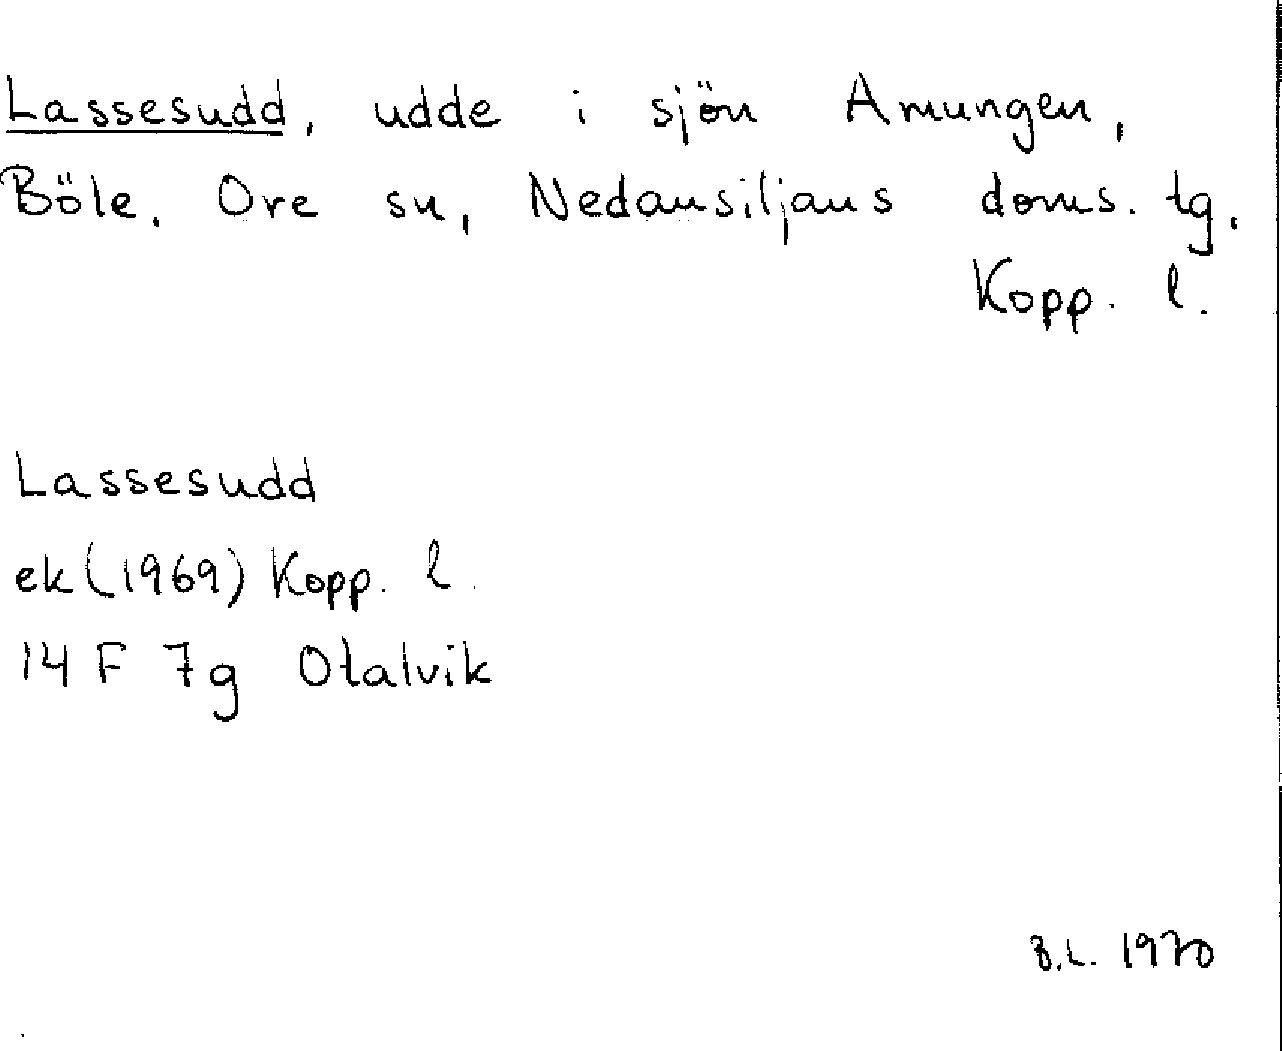 Lassesudd, udde i sjön Amungen,
Böle. Ore sn, Nedansiljans doms. tg.
Kopp. l.
Lassesudd
ek (1969) Kopp. l.
14 F 7g Otalvik
B.L. 1970